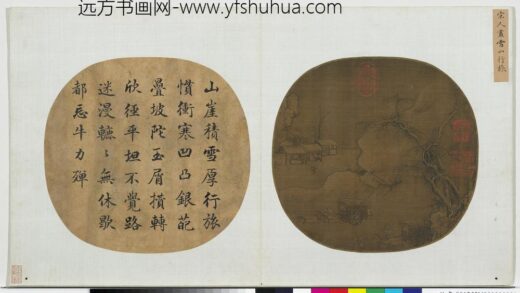 远方书画网-www.yfshuhua.com
宋人畫雪山行旅
山崖積雪厚行旅
慣衝寒凹凸銀葩
疊坡陀玉屑攢轉
欣徑平坦不覺路
迷漫轆〻無休歇
都忘牛力殫